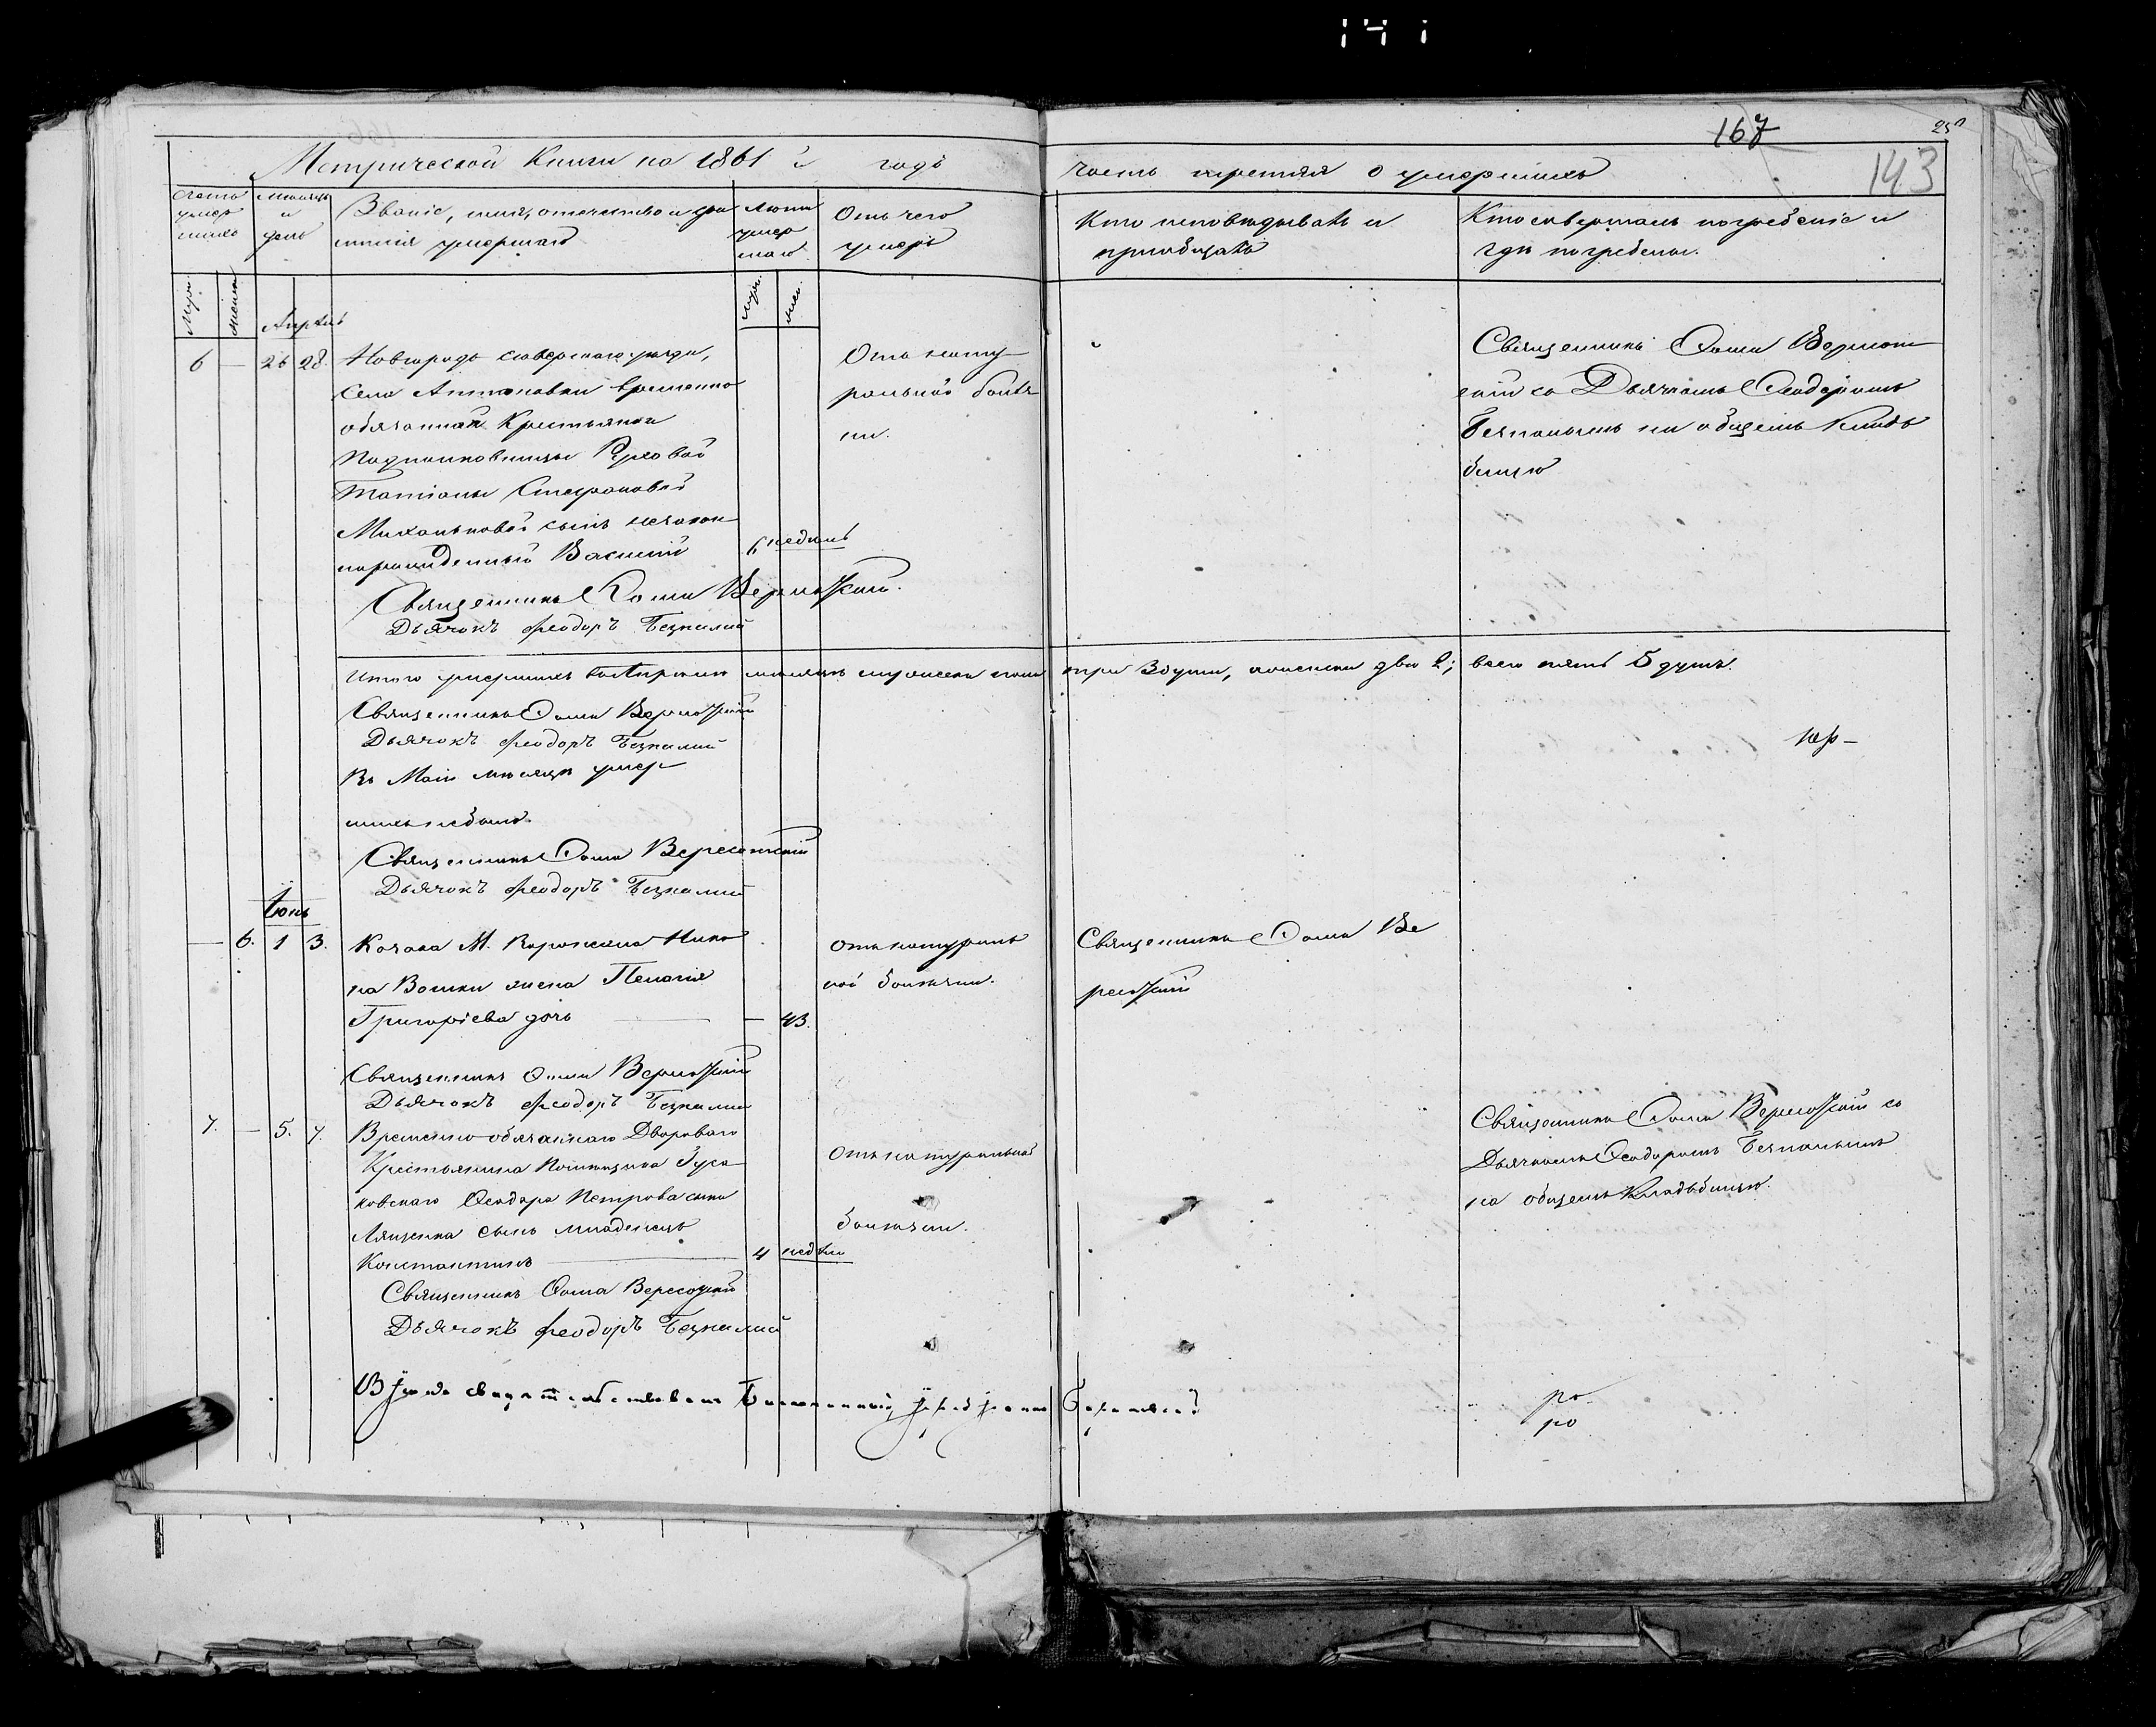 141
167
143
Метрической Книги на 1861 й годъ
часть третяя о умершихъ
Счетъ умершихъ
Мѣсяцъ и день
Званіе, имя, отчество и фамилія умершаго
Лѣта умершаго
Отъ чего умеръ
Кто исповѣдывалъ и
пріобщалъ
Кто совершалъ погребеніе и
гдѣ погребены.
Муж.
женск.
Муж.
жен.
Апрѣль
6 — 26 28.
Новгородъ сѣверскаго уѣзда,
села Антоновки временно
обязанной Крестьянки
Подполковницы
Татіаны Стефановой
сынъ незакон
норожденный Василій
6 недѣль
Отъ нату
ральной болѣз
ни.
Священникъ Ѳома Вересот
скій съ Дьячкомъ Ѳеодоромъ
Безпалымъ на общемъ кладъ
бищѣ
Священникъ Ѳома Вересоцкій.
Дьячокъ Феодоръ Безпалий
Итого умершихъ въ Апрѣлѣ мѣсяцѣ мужеска пола три 3 души, женска двѣ 2; всего пять 5 душъ.
Священникъ Ѳома Вересоцкій
Дьячокъ Феодоръ Безпалий
Въ Маи мѣсяцѣ умер
шихъ небыло.
Священникъ Ѳома Вересоцкій
Дьячокъ Феодоръ Безпалий
Іюнь
— 6. 1 3.
Козака М. Воронежа
жена Пелагія
Григоріева дочь — 43.
Отъ натураль
ной болѣзни.
Священникъ Ѳома Ве
ресоцкій
Священникъ Ѳома Вересоцкій
Дьячокъ Феодоръ Безпалий
7. — 5. 7.
Временно-обязаннаго Двороваго
Крестьянина помѣщика Гуса
ковскаго Ѳеодора Петрова сына
Лященка сынъ младенецъ
Константинъ 4 недѣли
Отъ натуральной
болѣзни.
Священникъ Ѳома Вересоцкій съ
Дьячкомъ Ѳеодоромъ Безпалымъ
на общемъ Кладьбищѣ.
Священникъ Ѳома Вересоцкій
Дьячокъ Феодоръ Безпалий
свидетельствовалъ Благочинный